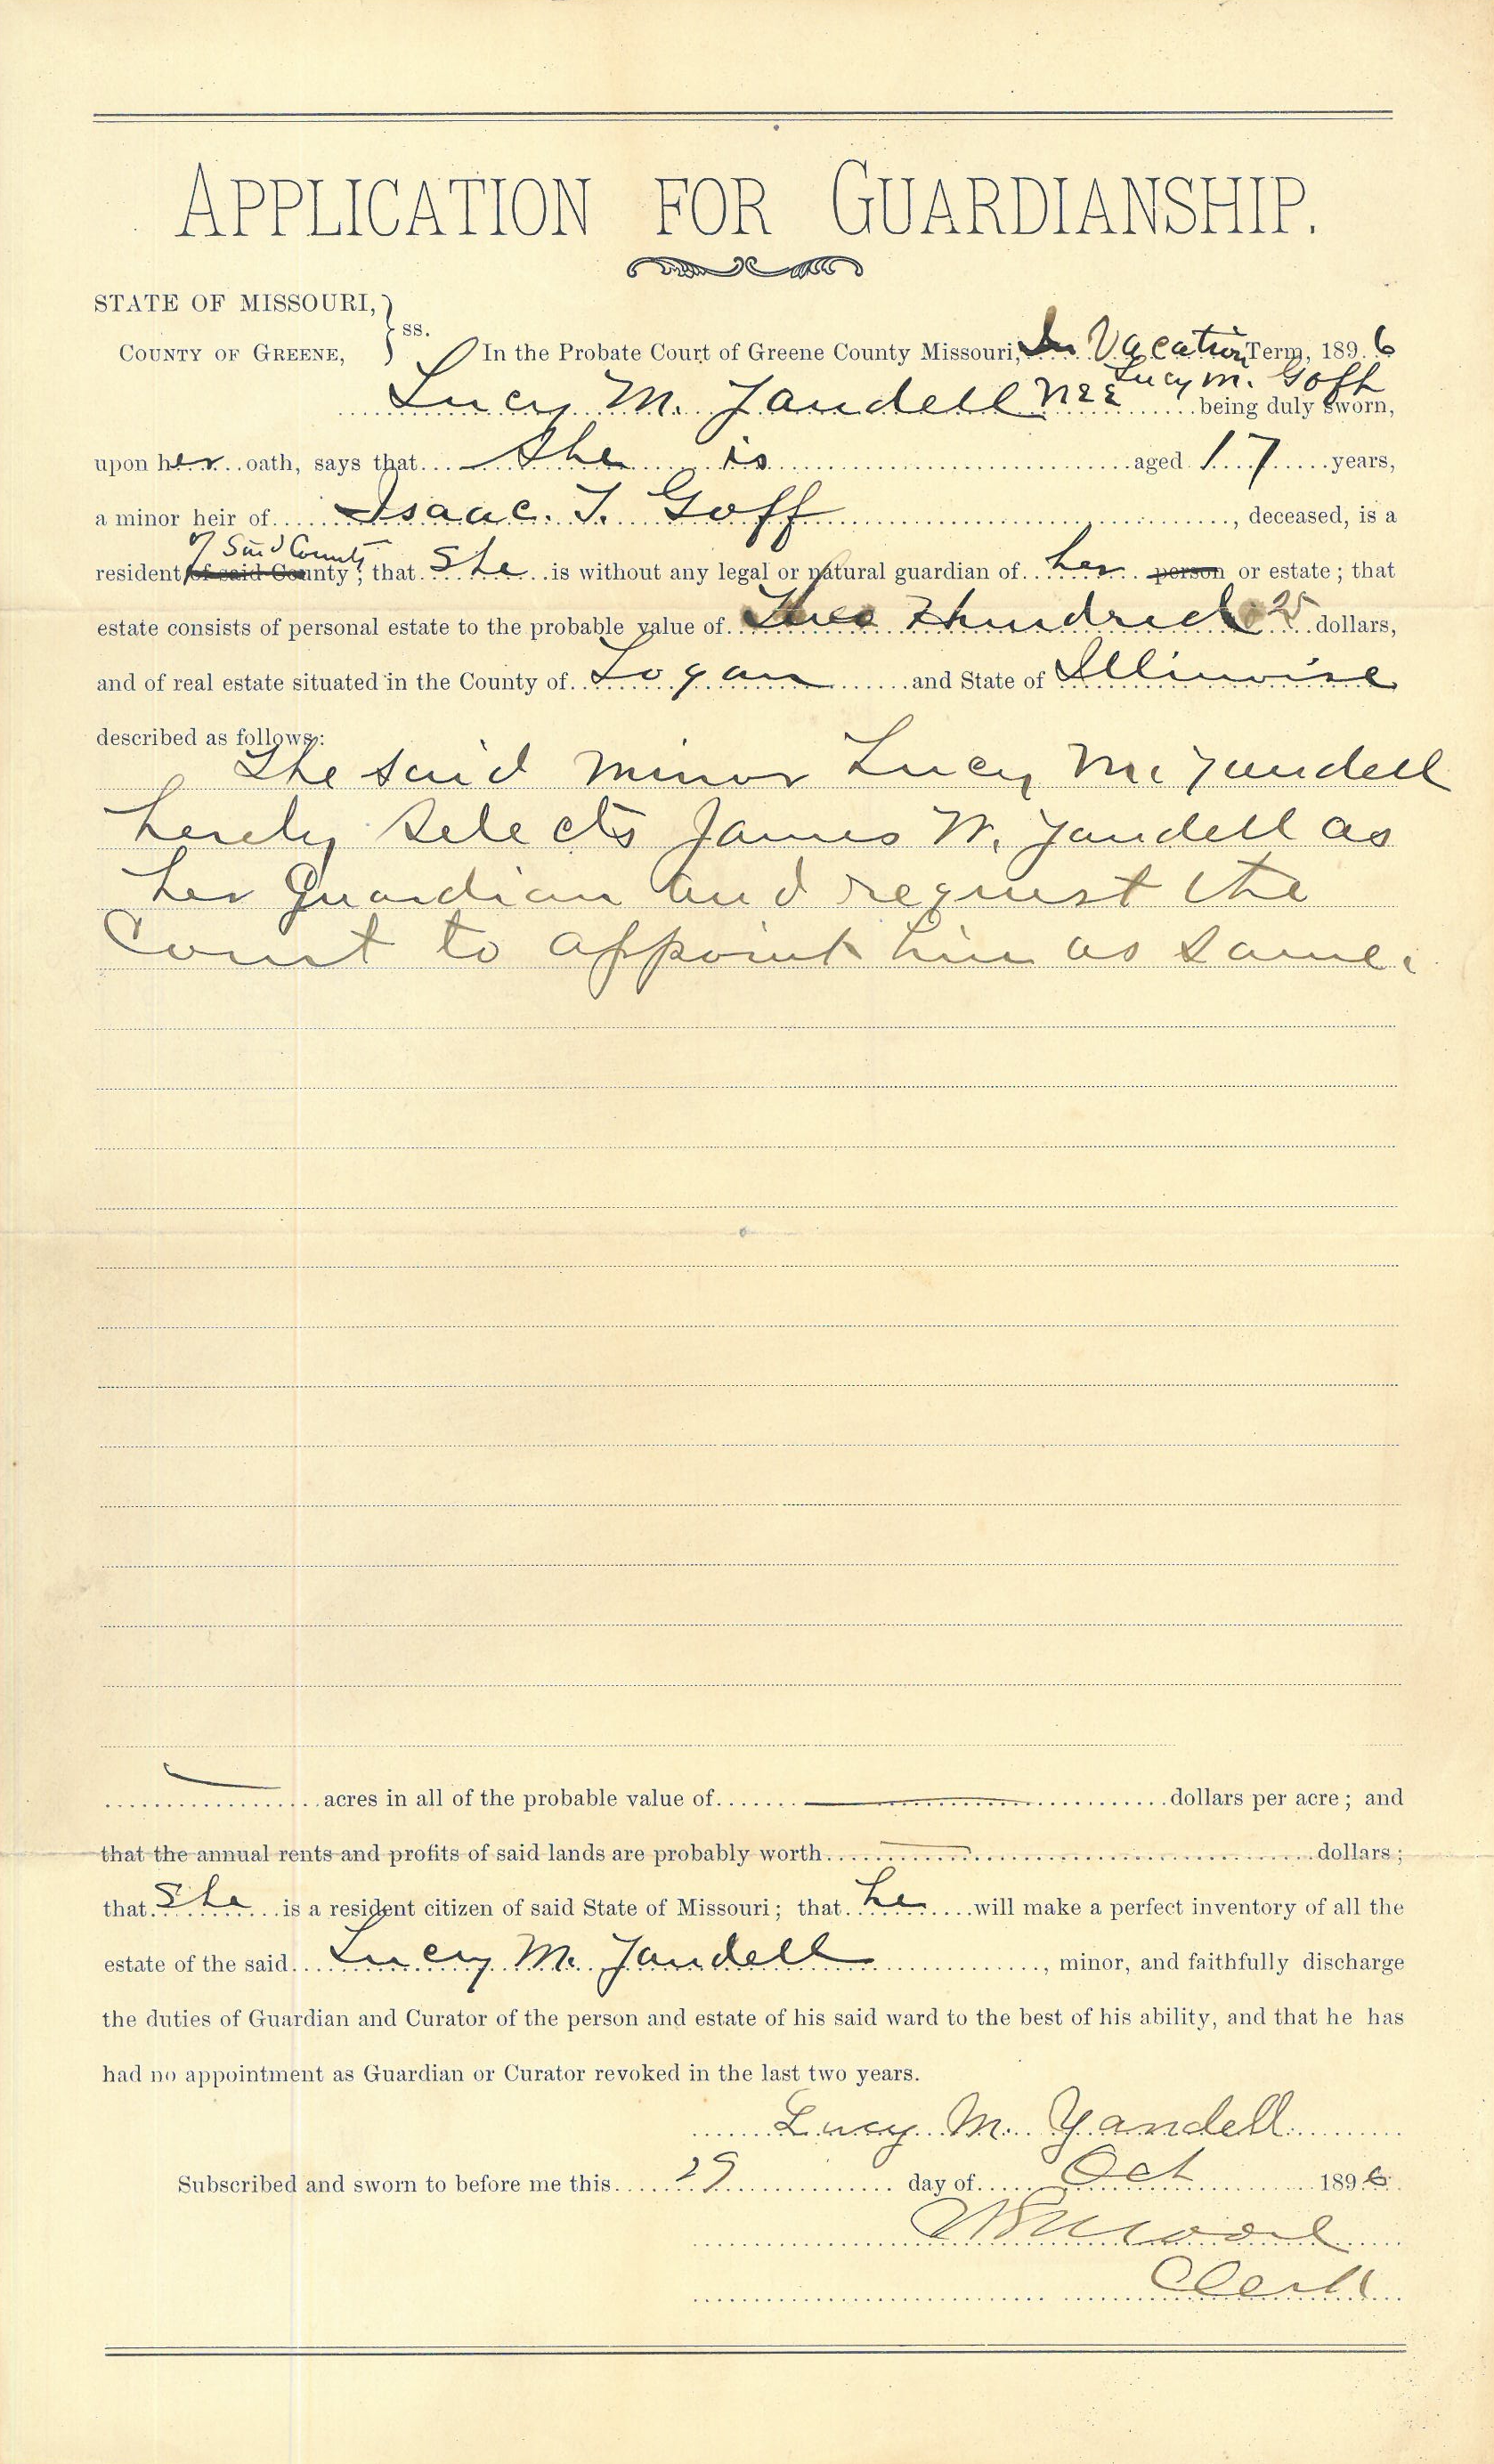 APPLICATION FOR GUARDIANSHIP.
STATE OF MISSOURI, } ss.
COUNTY OF GREENE,
In the Probate Court of Greene County Missouri, In Vacation Term, 1896
Lucy M. Yandell nee Lucy M. Goff being duly sworn,
upon her oath, says that She is aged 17 years,
a minor heir of Isaac. T. Goff, deceased, is a
of Said County
resident of said County; that She is without any legal or natural guardian of her person or estate; that
estate consists of personal estate to the probable value of Hundred 25 dollars,
and of real estate situated in the County of Logan and State of Illinoise
described as follows:
The said minor Lucy M. Yandell
herely selects James W. Yandell as
her Guardian and request the
Court to appoint him as same.
acres in all of the probable value of dollars per acre; and
that the annual rents and profits of said lands are probably worth dollars;
that She is a resident citizen of said State of Missouri; that he will make a perfect inventory of all the
estate of the said Lucy M. Yandell, minor, and faithfully discharge
the duties of Guardian and Curator of the person and estate of his said ward to the best of his ability, and that he has
had no appointment as Guardian or Curator revoked in the last two years.
Lucy M. Yandell
Subscribed and sworn to before me this 29 day of Oct 1896
Clerk